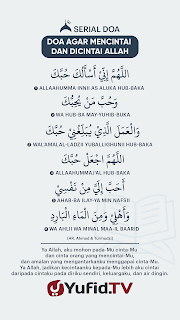 SERIAL DOA
DOA AGAR MENCINTAI
DAN DICINTAI ALLAH
اَللَّهُمَّ إِنِّيْ أَسْأَلُكَ حُبَّكَ
ALLAAHUMMA INNII AS ALUKA HUB-BAKA
وَحُبَّ مَنْ يُحِبُّكَ
WA HUB-BA MAY-YUHIB-BUKA
وَالْعَمَلَ الَّذِيْ يُبَلِّغُنِيْ حُبَّكَ
WAL'AMALAL-LADZII YUBALLIGHUNII HUB-BAKA
اَللَّهُمَّ اجْعَلْ حُبَّكَ
ALLAAHUMMAJ'AL HUB-BAKA
أَحَبَّ إِلَيَّ مِنْ نَفْسِيْ
AHAB-BA ILAY-YA MIN NAFSII
وَأَهْلِيْ وَمِنَ الْمَاءِ الْبَارِدِ
WA AHLII WA MINAL MAA-IL BAARID
(HR. Ahmad & Tirmidzi)
Ya Allah, aku mohon pada-Mu cinta-Mu
dan cinta orang yang mencintai-Mu,
dan amalan yang mengantarkanku menggapai cinta-Mu.
Ya Allah, jadikan kecintaanku kepada-Mu lebih aku cintai
daripada cintaku pada diriku sendiri, keluargaku, dan air dingin.
Yufid.TV